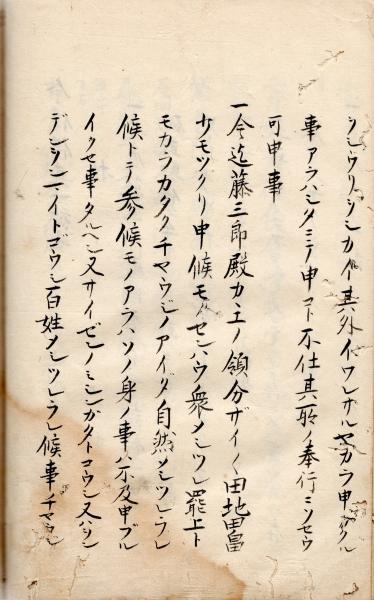 シシウリシシカイ其外イワレサルヤカラ申カクル
事アラハシタニテ申コト不仕其所ノ奉行ニソセウ
可申事
一今迄藤三郎殿カヽエノ領分ザイ〱田地田畠
少モツクリ申候モノセンハウ衆メシツレ罷上ト
モカラカタクチヤウジノアイダ自然メシツレラレ
候トテ参候モノアラハソノ身ノ事ハ不及申ブル
イクセ事タルヘシ又サイゼンノミシンガタトコウシ又ハシン
デンシニイトゴウシ百姓メシツレラレ候事チヤウシ